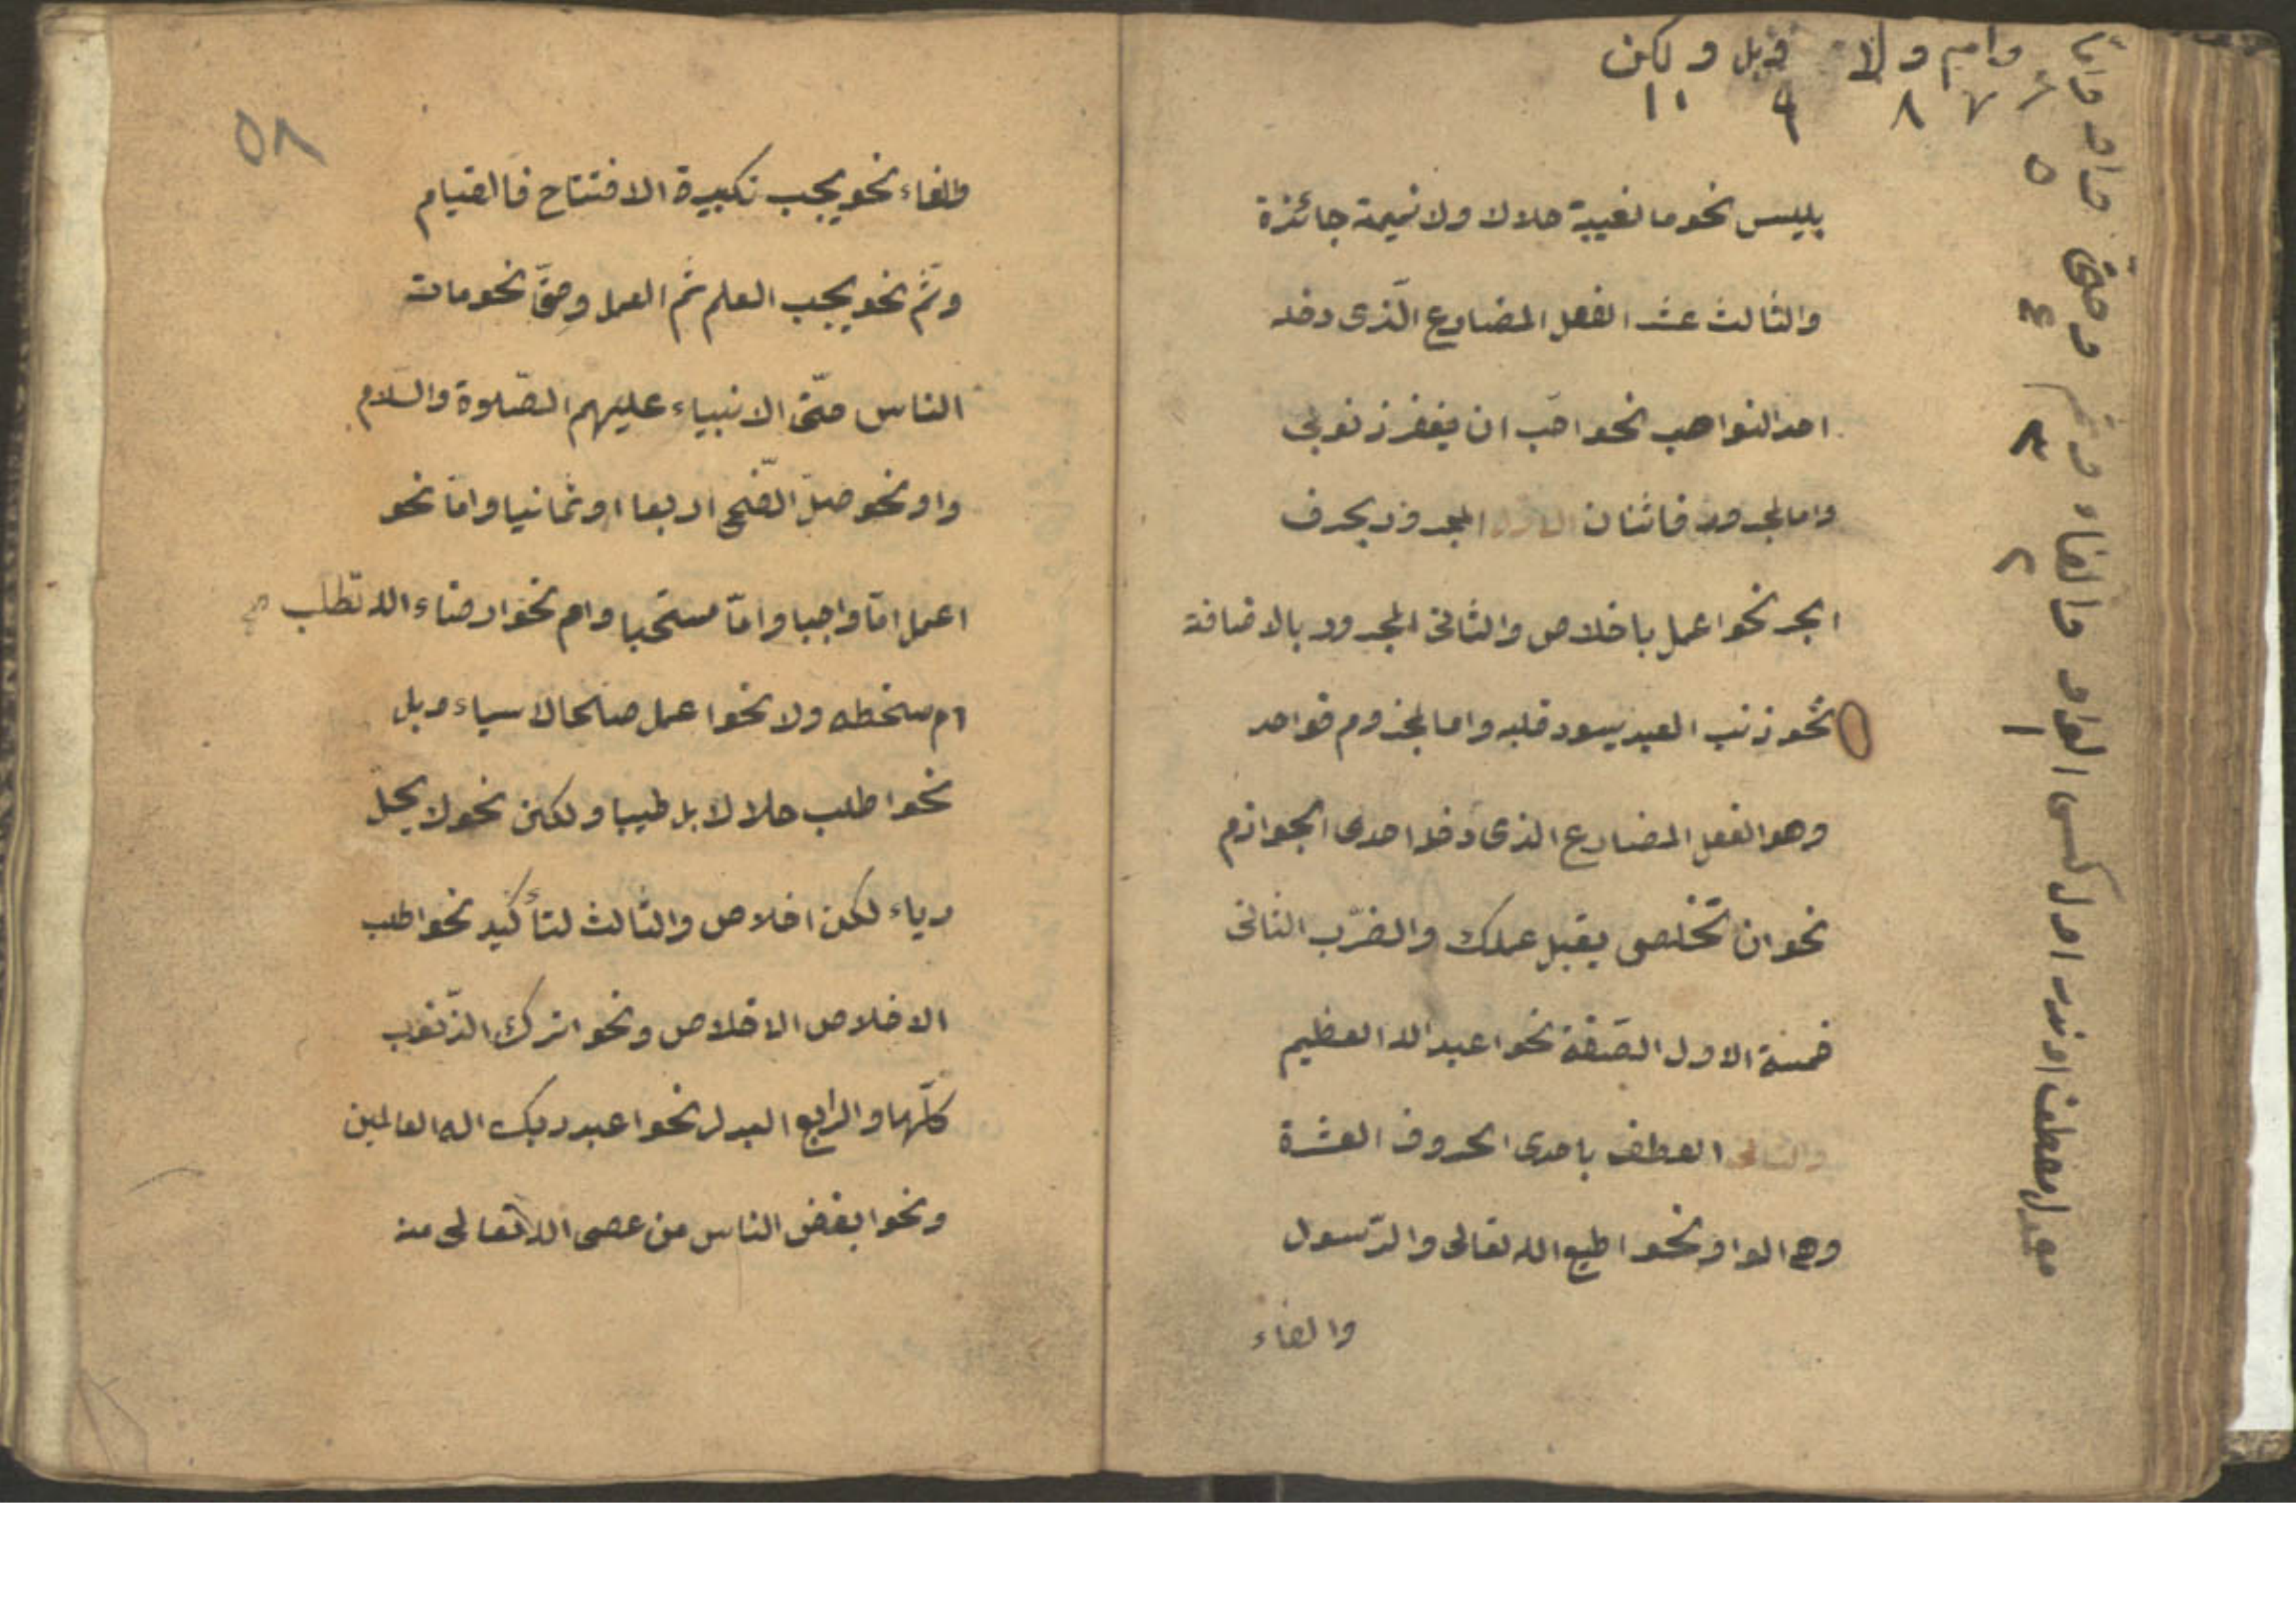 وام ولا وبل ولكن
٧ ٨ ٩ ١٠
الواو والفاء وثم وحتى واو واما
١ ٢ ٣ ٤ ٥ ٦
بليس نحو ما لغيبة حلالا ولا نميمة جائزة
والثالث عشر الفعل المضارع الّذى دخله
احد النواصب نحو احبّ ان يغفر ذنوبى
واما المجرور فاثنان الاول المجرور بحرف
الجر نحو اعمل باخلاص والثانى المجرور بالاضافة
نحو ذنب العبد يسود قلبه واما المجزوم فواحد
وهو الفعل المضارع الذى دخله احدى الجوازم
نحو ان تخلص يقبل عملك والضّرب الثانى
خمسة الاول الصّفة نحو اعبد الله العظيم
والثانى العطف باحدى الحروف العشرة
وهى الواو نحو اطيع الله تعالى والرّسول
والفاء
٥٨
والفاء نحو يجب تكبيرة الافتتاح فالقيام
وثمّ نحو يجب العلم ثم العمل وحتّى نحو مات
الناس حتّى الانبياء عليهم الصّلوة والسّلام
واو نحو صلّ الضّحى اربعا او ثمانيا وامّا نحو
اعمل امّا واجبا وامّا مستحبا وام نحو ارضاء الله تطلب
ام سخطه ولا نحو اعمل صالحا لا سياء وبل
نحو اطلب حلالا بل طيبا ولكن نحو لا يحلّ
رياء لكن اخلاص والثالث لتأكيد نحو اطلب
الاخلاص الاخلاص ونحو اترك الذّنوب
كلّها والرابع البدل نحو اعبد ربك اله العالمين
ونحو ابغض الناس من عصى الله تعالى منه